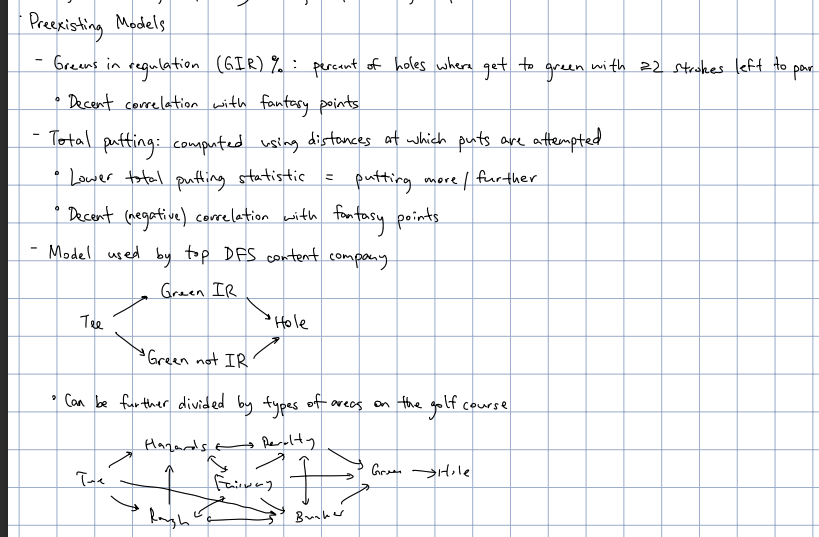 Preexisting Models
- Greens in regulation (GIR) % : percent of holes where get to green with ≥2 strokes left to par
° Decent correlation with fantasy points
- Total putting: computed using distances at which puts are attempted
° Lower total putting statistic = putting more / further
° Decent (negative) correlation with fantasy points
- Model used by top DFS content company
Green IR
Tee
Hole
Green not IR
° Can be further divided by types of areas on the golf course
Hazards Penalty
Tee Fairway Green Hole
Rough Bunker